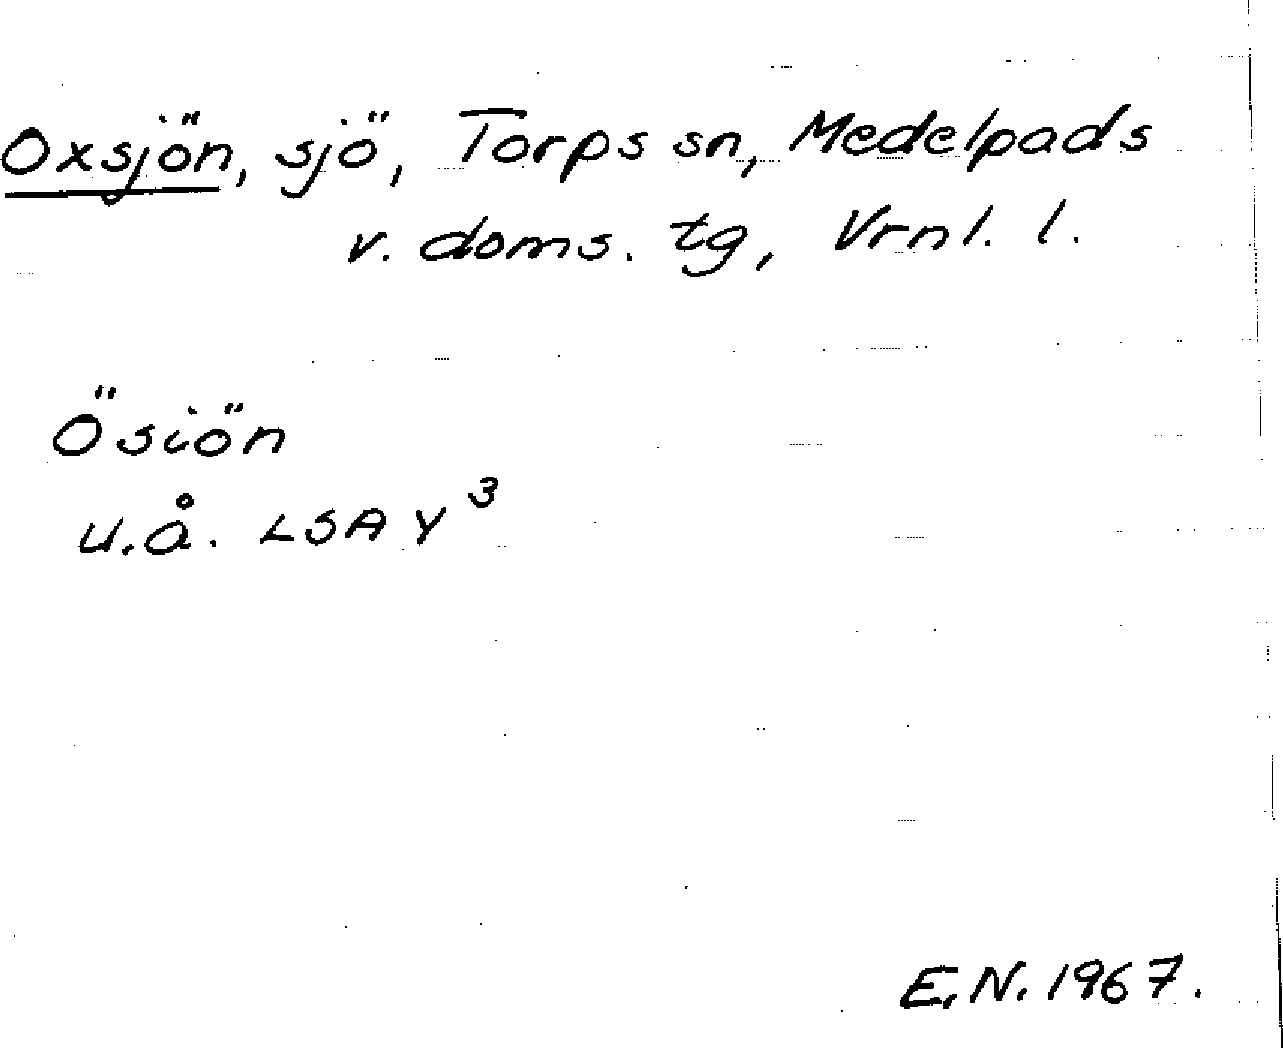 Oxsjön, sjö, Torps sn, Medelpads
v. doms. tg, Vrnl. l.
Ösiön
u.å. LSA Y³
E.N. 1967.